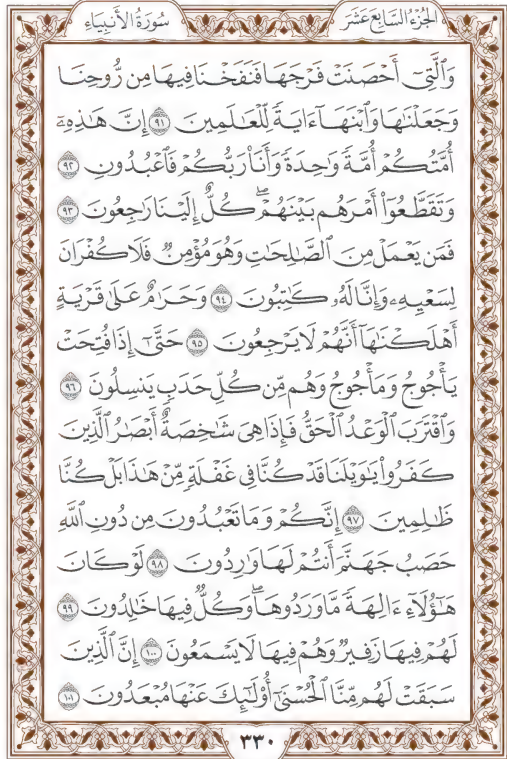 الجُزْءُ السَّابِعَ عَشَرَ
سُورَةُ الأَنبِيَاءِ
وَٱلَّتِىٓ أَحْصَنَتْ فَرْجَهَا فَنَفَخْنَا فِيهَا مِن رُّوحِنَا
وَجَعَلْنَٰهَا وَٱبْنَهَآ ءَايَةً لِّلْعَٰلَمِينَ ۝٩١ إِنَّ هَٰذِهِۦٓ
أُمَّتُكُمْ أُمَّةً وَٰحِدَةً وَأَنَا۠ رَبُّكُمْ فَٱعْبُدُونِ ۝٩٢
وَتَقَطَّعُوٓا۟ أَمْرَهُم بَيْنَهُمْ ۖ كُلٌّ إِلَيْنَا رَٰجِعُونَ ۝٩٣
فَمَن يَعْمَلْ مِنَ ٱلصَّٰلِحَٰتِ وَهُوَ مُؤْمِنٌ فَلَا كُفْرَانَ
لِسَعْيِهِۦ وَإِنَّا لَهُۥ كَٰتِبُونَ ۝٩٤ وَحَرَٰمٌ عَلَىٰ قَرْيَةٍ
أَهْلَكْنَٰهَآ أَنَّهُمْ لَا يَرْجِعُونَ ۝٩٥ حَتَّىٰٓ إِذَا فُتِحَتْ
يَأْجُوجُ وَمَأْجُوجُ وَهُم مِّن كُلِّ حَدَبٍ يَنسِلُونَ ۝٩٦
وَٱقْتَرَبَ ٱلْوَعْدُ ٱلْحَقُّ فَإِذَا هِىَ شَٰخِصَةٌ أَبْصَٰرُ ٱلَّذِينَ
كَفَرُوا۟ يَٰوَيْلَنَا قَدْ كُنَّا فِى غَفْلَةٍ مِّنْ هَٰذَا بَلْ كُنَّا
ظَٰلِمِينَ ۝٩٧ إِنَّكُمْ وَمَا تَعْبُدُونَ مِن دُونِ ٱللَّهِ
حَصَبُ جَهَنَّمَ أَنتُمْ لَهَا وَٰرِدُونَ ۝٩٨ لَوْ كَانَ
هَٰٓؤُلَآءِ ءَالِهَةً مَّا وَرَدُوهَا ۖ وَكُلٌّ فِيهَا خَٰلِدُونَ ۝٩٩
لَهُمْ فِيهَا زَفِيرٌ وَهُمْ فِيهَا لَا يَسْمَعُونَ ۝١٠٠ إِنَّ ٱلَّذِينَ
سَبَقَتْ لَهُم مِّنَّا ٱلْحُسْنَىٰٓ أُو۟لَٰٓئِكَ عَنْهَا مُبْعَدُونَ ۝١٠١
٣٣٠